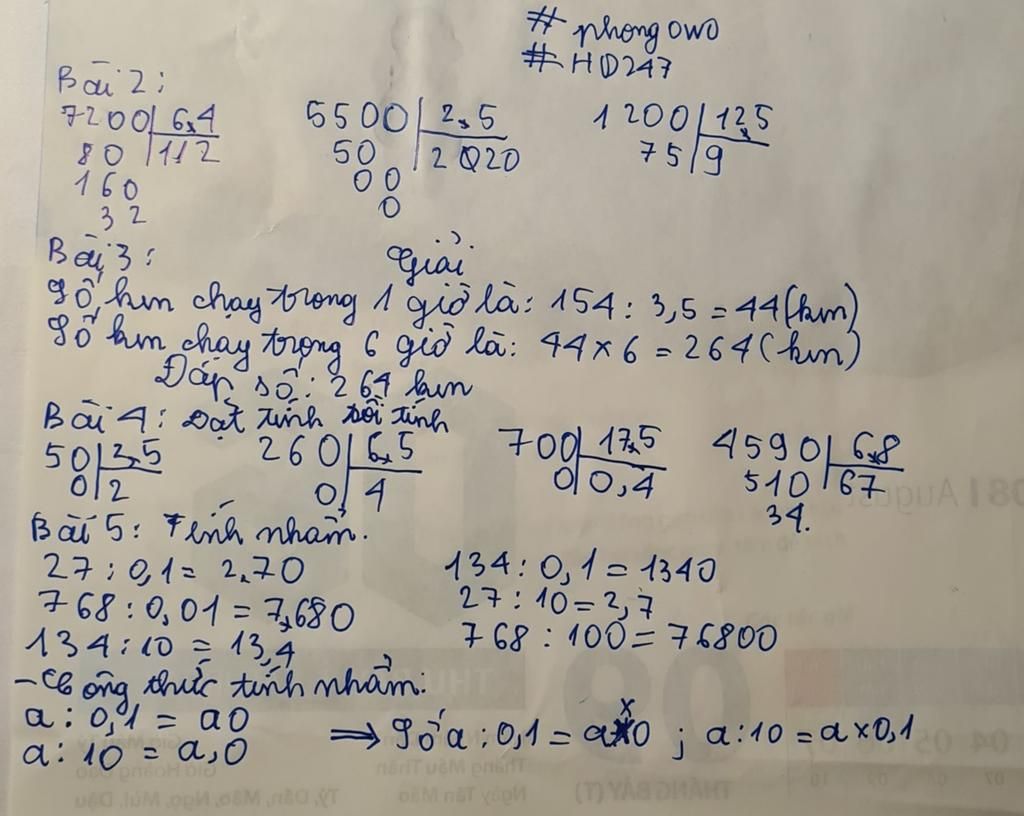 # phong owo
# HD247
Bài 2:
7200 | 6,4    5500 | 2,5    1200 | 12,5
80 | 112    50 | 2020    75 | 9
160    00
32    0
Bài 3:    Giải
Số km chạy trong 1 giờ là: 154 : 3,5 = 44 (km)
Số km chạy trong 6 giờ là: 44 × 6 = 264 (km)
Đáp số: 264 km
Bài 4: Đặt tính rồi tính
50 | 2,5    260 | 6,5    700 | 17,5    4590 | 6,8
0 | 2    0 | 4    0 | 0,4    510 | 67
34.
Bài 5: Tính nhẩm.
27 : 0,1 = 2,70    134 : 0,1 = 1340
768 : 0,01 = 7,680    27 : 10 = 2,7
134 : 10 = 13,4    768 : 100 = 76800
- Công thức tính nhẩm:
a : 0,1 = a0    ⇒ Số a : 0,1 = a×0 ; a : 10 = a × 0,1
a : 10 = a,0